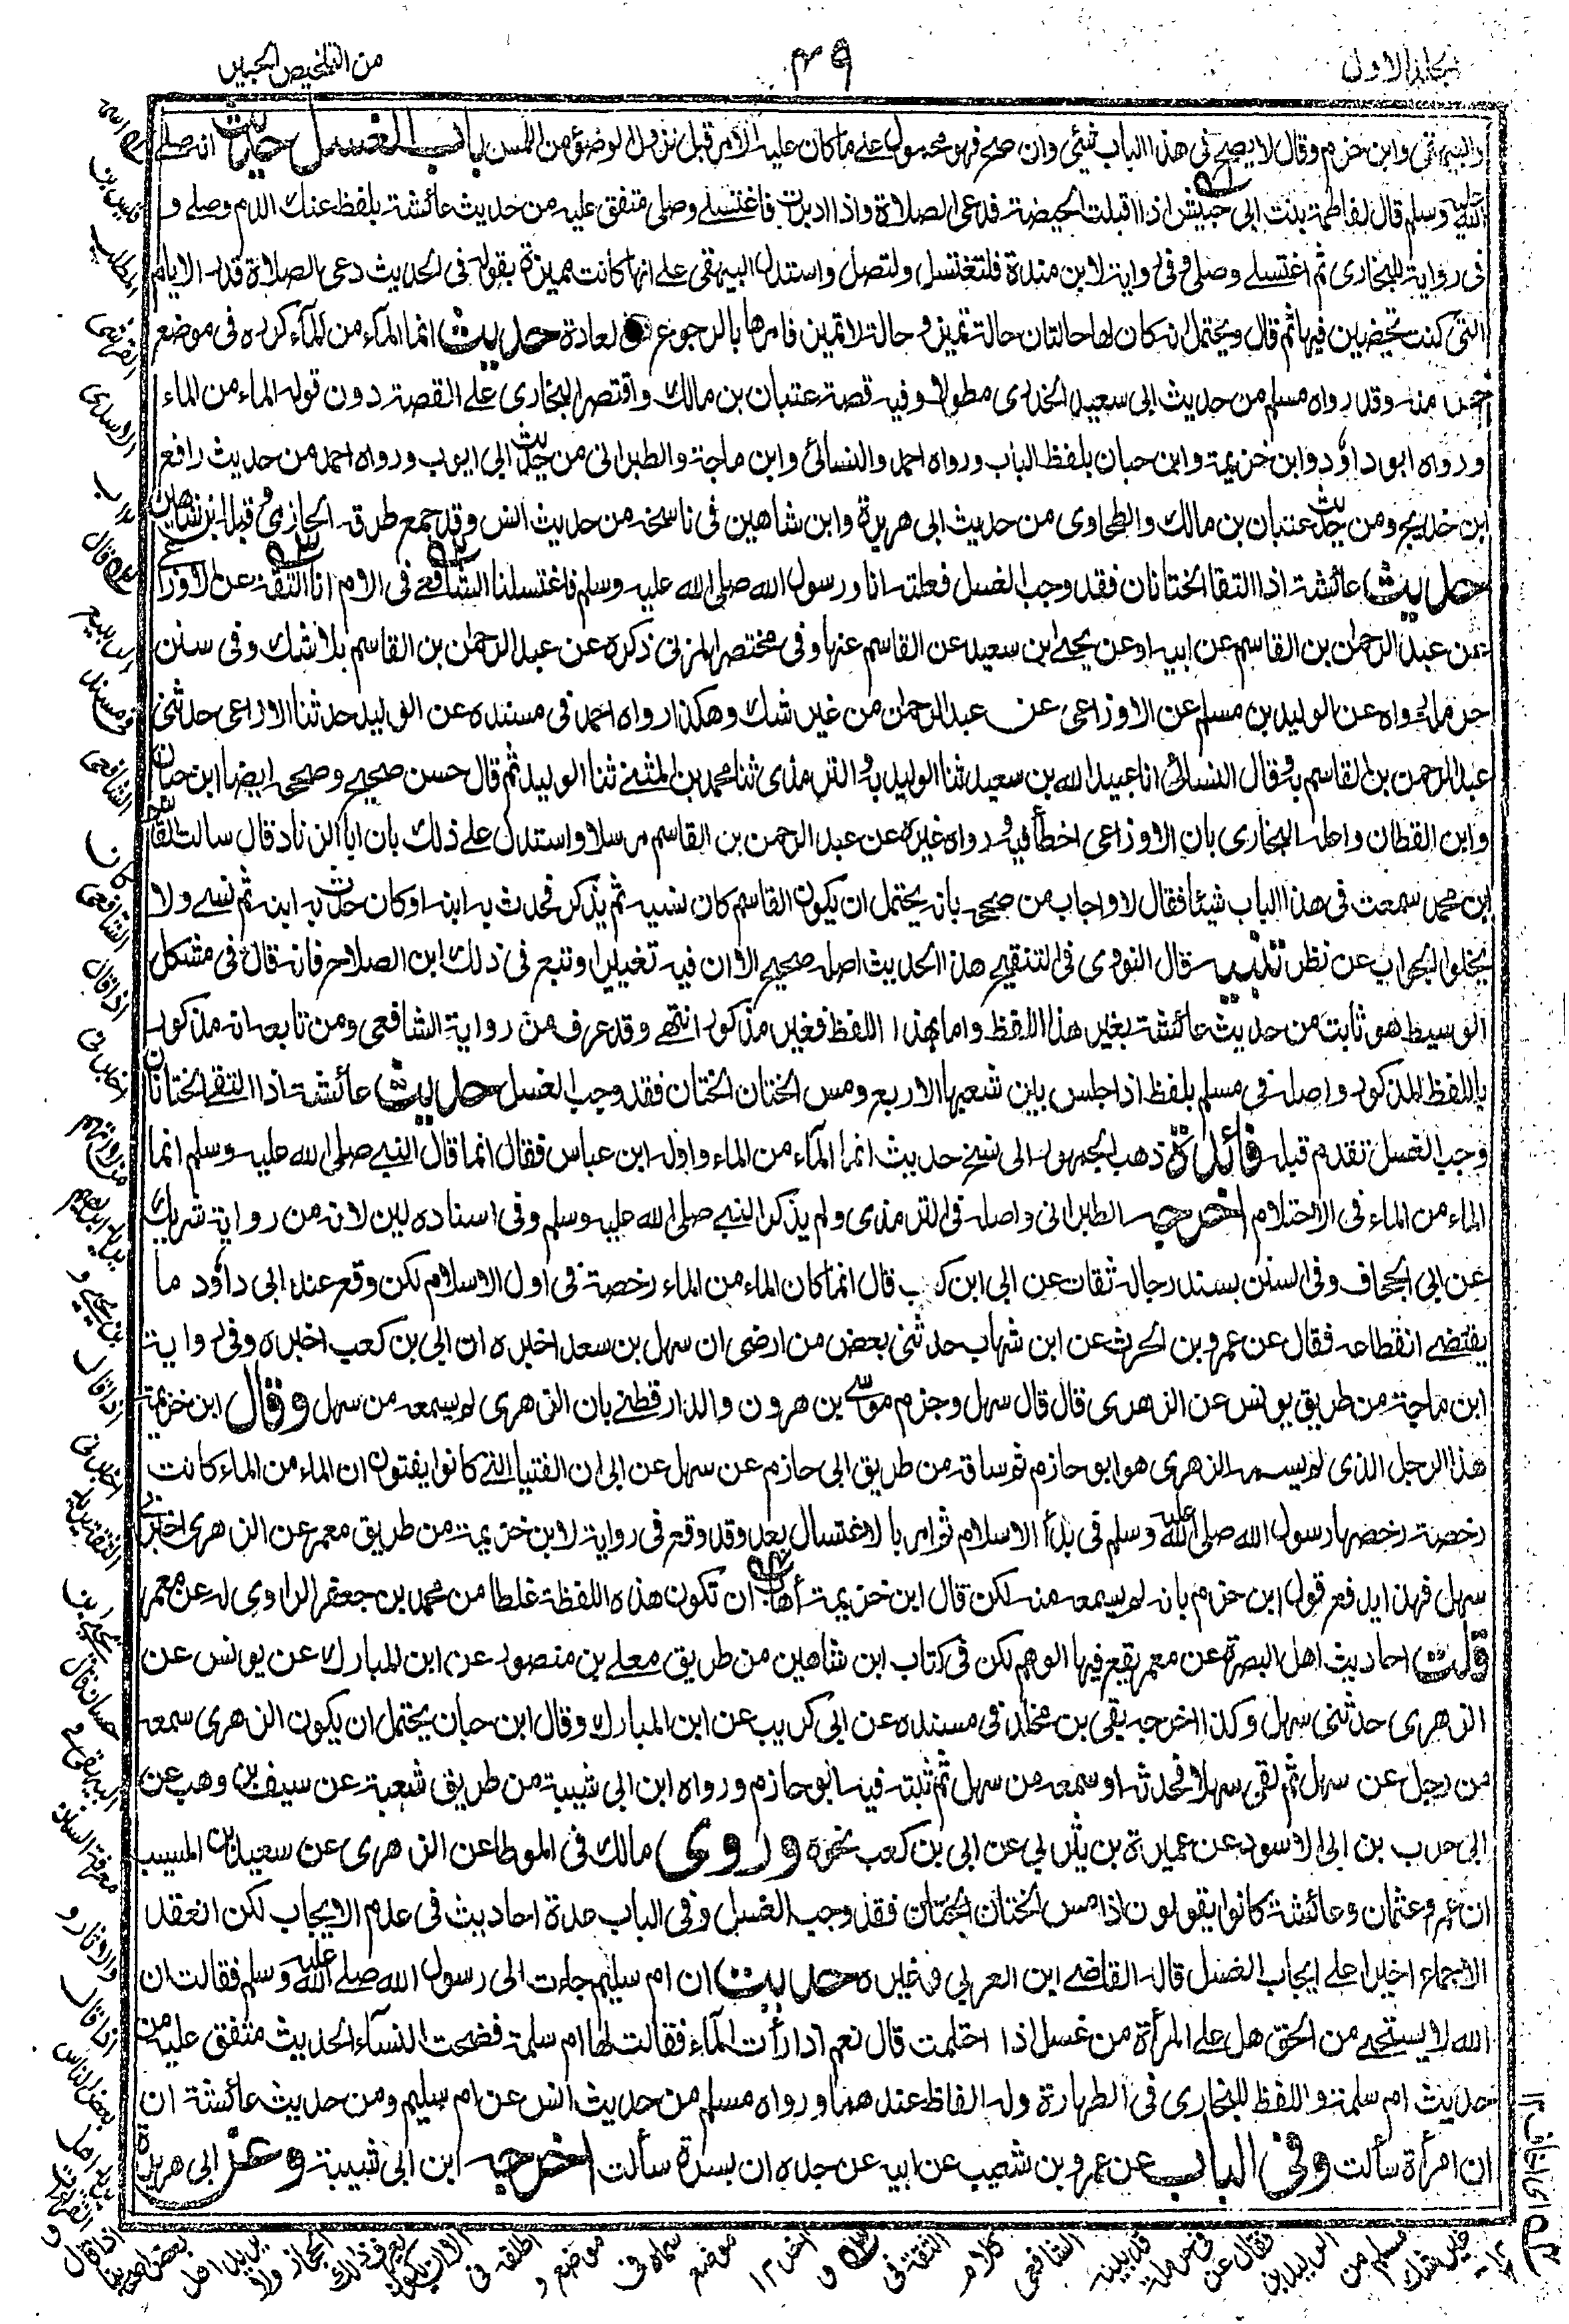 المجلد الاول
٤٩
من التلخيص الحبير
والبيهقى وابن حزم وقال لا يصح فى هذا الباب شيئى وان صح فهو محمول على ما كان عليه الامر قبل نزول الوضوء من المس باب الغسل حديث انه صلے
الله عليه وسلم قال لفاطمة بنت ابى حبيش اذا اقبلت الحيضة فدعى الصلاة واذا ادبرت فاغتسلے وصلى متفق عليه من حديث عائشة بلفظ عنك الدم وصلے و
فى رواية للبخارى ثم اغتسلے وصلى وفى رواية لابن مندة فلتغتسل ولتصل واستدل البيهقى على انها كانت مميزة بقوله فى الحديث دعى الصلاة قدر الايام
التى كنت تحيضين فيها ثم قال ويحتمل انه كان لها حالتان حالة تميز وحالة لا تميز فامرها بالرجوع لعادة حديث انما المآء من المآء كرره فى موضع
آخر منه وقد رواه مسلم من حديث ابى سعيد الخدرى مطولا وفيه قصة عتبان بن مالك واقتصر البخارى على القصة دون قوله الماء من الماء
ورواه ابو داؤد وابن خزيمة وابن حبان بلفظ الباب ورواه احمد والنسائى وابن ماجة والطبرانى من حديث ابى ايوب ورواه احمد من حديث رافع
ابن خديج ومن حديث عتبان بن مالك والطحاوى من حديث ابى هريرة وابن شاهين فى ناسخه من حديث انس وقد جمع طرقه الحازمى وقبله ابن شاهين
حديث عائشة اذا التقا الختانان فقد وجب الغسل فعلته انا ورسول الله صلى الله عليه وسلم فاغتسلنا الشافعے فى الام انا الثقة عن الاوزاعى
عن عبد الرحمان بن القاسم عن ابيه او عن يحيے ابن سعيد عن القاسم عنها وفى مختصر المزنى ذكره عن عبد الرحمان بن القاسم بلا شك وفى سنن
حرملة رواه عن الوليد بن مسلم عن الاوزاعى عن عبد الرحمان من غير شك وهكذا رواه احمد فى مسنده عن الوليد حدثنا الاوزاعى حدثنى
عبد الرحمن بن القاسم به وقال النسائى انا عبيد الله بن سعيد ثنا الوليد به والترمذى ثنا محمد بن المثنے ثنا الوليد ثم قال حسن صحيح وصححه ايضا ابن حبان
وابن القطان واعله البخارى بان الاوزاعى اخطأ فيه ورواه غيره عن عبد الرحمن بن القاسم مرسلا واستدل على ذلك بان ابا الزناد قال سالت القاسم
ابن محمد سمعت فى هذا الباب شيئا فقال لا واجاب من صححه بانه يحتمل ان يكون القاسم كان نسيه ثم يذكر فحدث به ابنه او كان حدث به ابنه ثم نسے ولا
يخلوا الجواب عن نظر تنبيه قال النووى فى التنقيح هذا الحديث اصله صحيح الا ان فيه تغييرا وتبع فى ذلك ابن الصلاح فانه قال فى مشكل
الوسيط هو ثابت من حديث عائشة بغير هذا اللفظ واما بهذا اللفظ فغير مذكور انتهے وقد عرف من رواية الشافعى ومن تابعه انه مذكور
باللفظ المذكور واصله فى مسلم بلفظ اذا جلس بين شعبها الاربع ومس الختان الختان فقد وجب الغسل حديث عائشة اذا التقے الختانان
وجب الغسل تقدم قبله فائدة ذهب الجمهور الى نسخ حديث انما المآء من الماء واوله ابن عباس فقال انما قال النبے صلى الله عليه وسلم انما
الماء من الماء فى الاحتلام اخرجه الطبرانى واصله فى الترمذى ولم يذكر النبے صلى الله عليه وسلم وفى اسناده لين لانه من رواية شريك
عن ابى الجحاف وفى السنن بسند رجاله ثقات عن ابى ابن كعب قال انما كان الماء من الماء رخصة فى اول الاسلام لكن وقع عند ابى داؤد ما
يقتضے انقطاعه فقال عن عمرو بن الحرث عن ابن شهاب حدثنى بعض من ارضى ان سهل بن سعد اخبره ان ابى بن كعب اخبره وفى رواية
ابن ماجة من طريق يونس عن الزهرى قال قال سهل وجزم موسے بن هرون والدارقطنے بان الزهرى لم يسمعه من سهل وقال ابن خزيمة
هذا الرجل الذى لم يسمه الزهرى هو ابو حازم ثم ساقه من طريق ابى حازم عن سهل عن ابى ان الفتيا التے كانوا يفتون ان الماء من الماء كانت
رخصة رخصها رسول الله صلى الله عليه وسلم فى بدأ الاسلام ثم امر بالاغتسال بعد وقد وقع فى رواية لابن خزيمة من طريق معمر عن الزهرى اخبرنى
سهل فهذا يدفع قول ابن حزم بانه لم يسمعه منه لكن قال ابن خزيمة أهاب ان تكون هذه اللفظة غلطا من محمد بن جعفر الراوى له عن معمر
قلت احاديث اهل البصرة عن معمر يقع فيها الوهم لكن فى كتاب ابن شاهين من طريق معلے بن منصور عن ابن المبارك عن يونس عن
الزهرى حدثنى سهل وكذا اخرجه بقى بن مخلد فى مسنده عن ابى كريب عن ابن المبارك وقال ابن حبان يحتمل ان يكون الزهرى سمعه
من رجل عن سهل ثم لقى سهلا فحدثه او سمعه من سهل ثم ثبته فيه ابو حازم ورواه ابن ابى شيبة من طريق شعبة عن سيف بن وهب عن
ابى حرب بن ابى الاسود عن عميرة بن يثربى عن ابى بن كعب نحوه وروى مالك فى الموطا عن الزهرى عن سعيد بن المسيب
ان عمر وعثمان وعائشة كانوا يقولون اذا مس الختان الختان فقد وجب الغسل وفى الباب عدة احاديث فى عدم الايجاب لكن انعقد
الاجماع اخيرا على ايجاب الغسل قاله القاضے ابن العربى وغيره حديث ان ام سليم جاءت الى رسول الله صلے الله عليه وسلم فقالت ان
الله لا يستحيے من الحق هل على المرأة من غسل اذا احتلمت قال نعم اذا رأت المآء فقالت لها ام سلمة فضحت النسآء الحديث متفق عليه من
حديث ام سلمة واللفظ للبخارى فى الطهارة وله الفاظ عندهما ورواه مسلم من حديث انس عن ام سليم ومن حديث عائشة ان
ان امرأة سألت وفى الباب عن عمرو بن شعيب عن ابيه عن جده ان بسرة سألت اخرجه ابن ابى شيبة وعن ابى هريرة
قيس بن
المطلب
القرشى
الاسدى
قال
الربيع
فى مسند
الشافعى
كان
الشافعى
اذا قال
اخبرنى
ابراهيم
بن يحيى و
اذا قال
اخبرنى
الثقة يريد
يحيى بن
حسان قال
البيهقى فى
معرفة السنن
والاثار و
انما قال
بعض الناس
يريد اهل